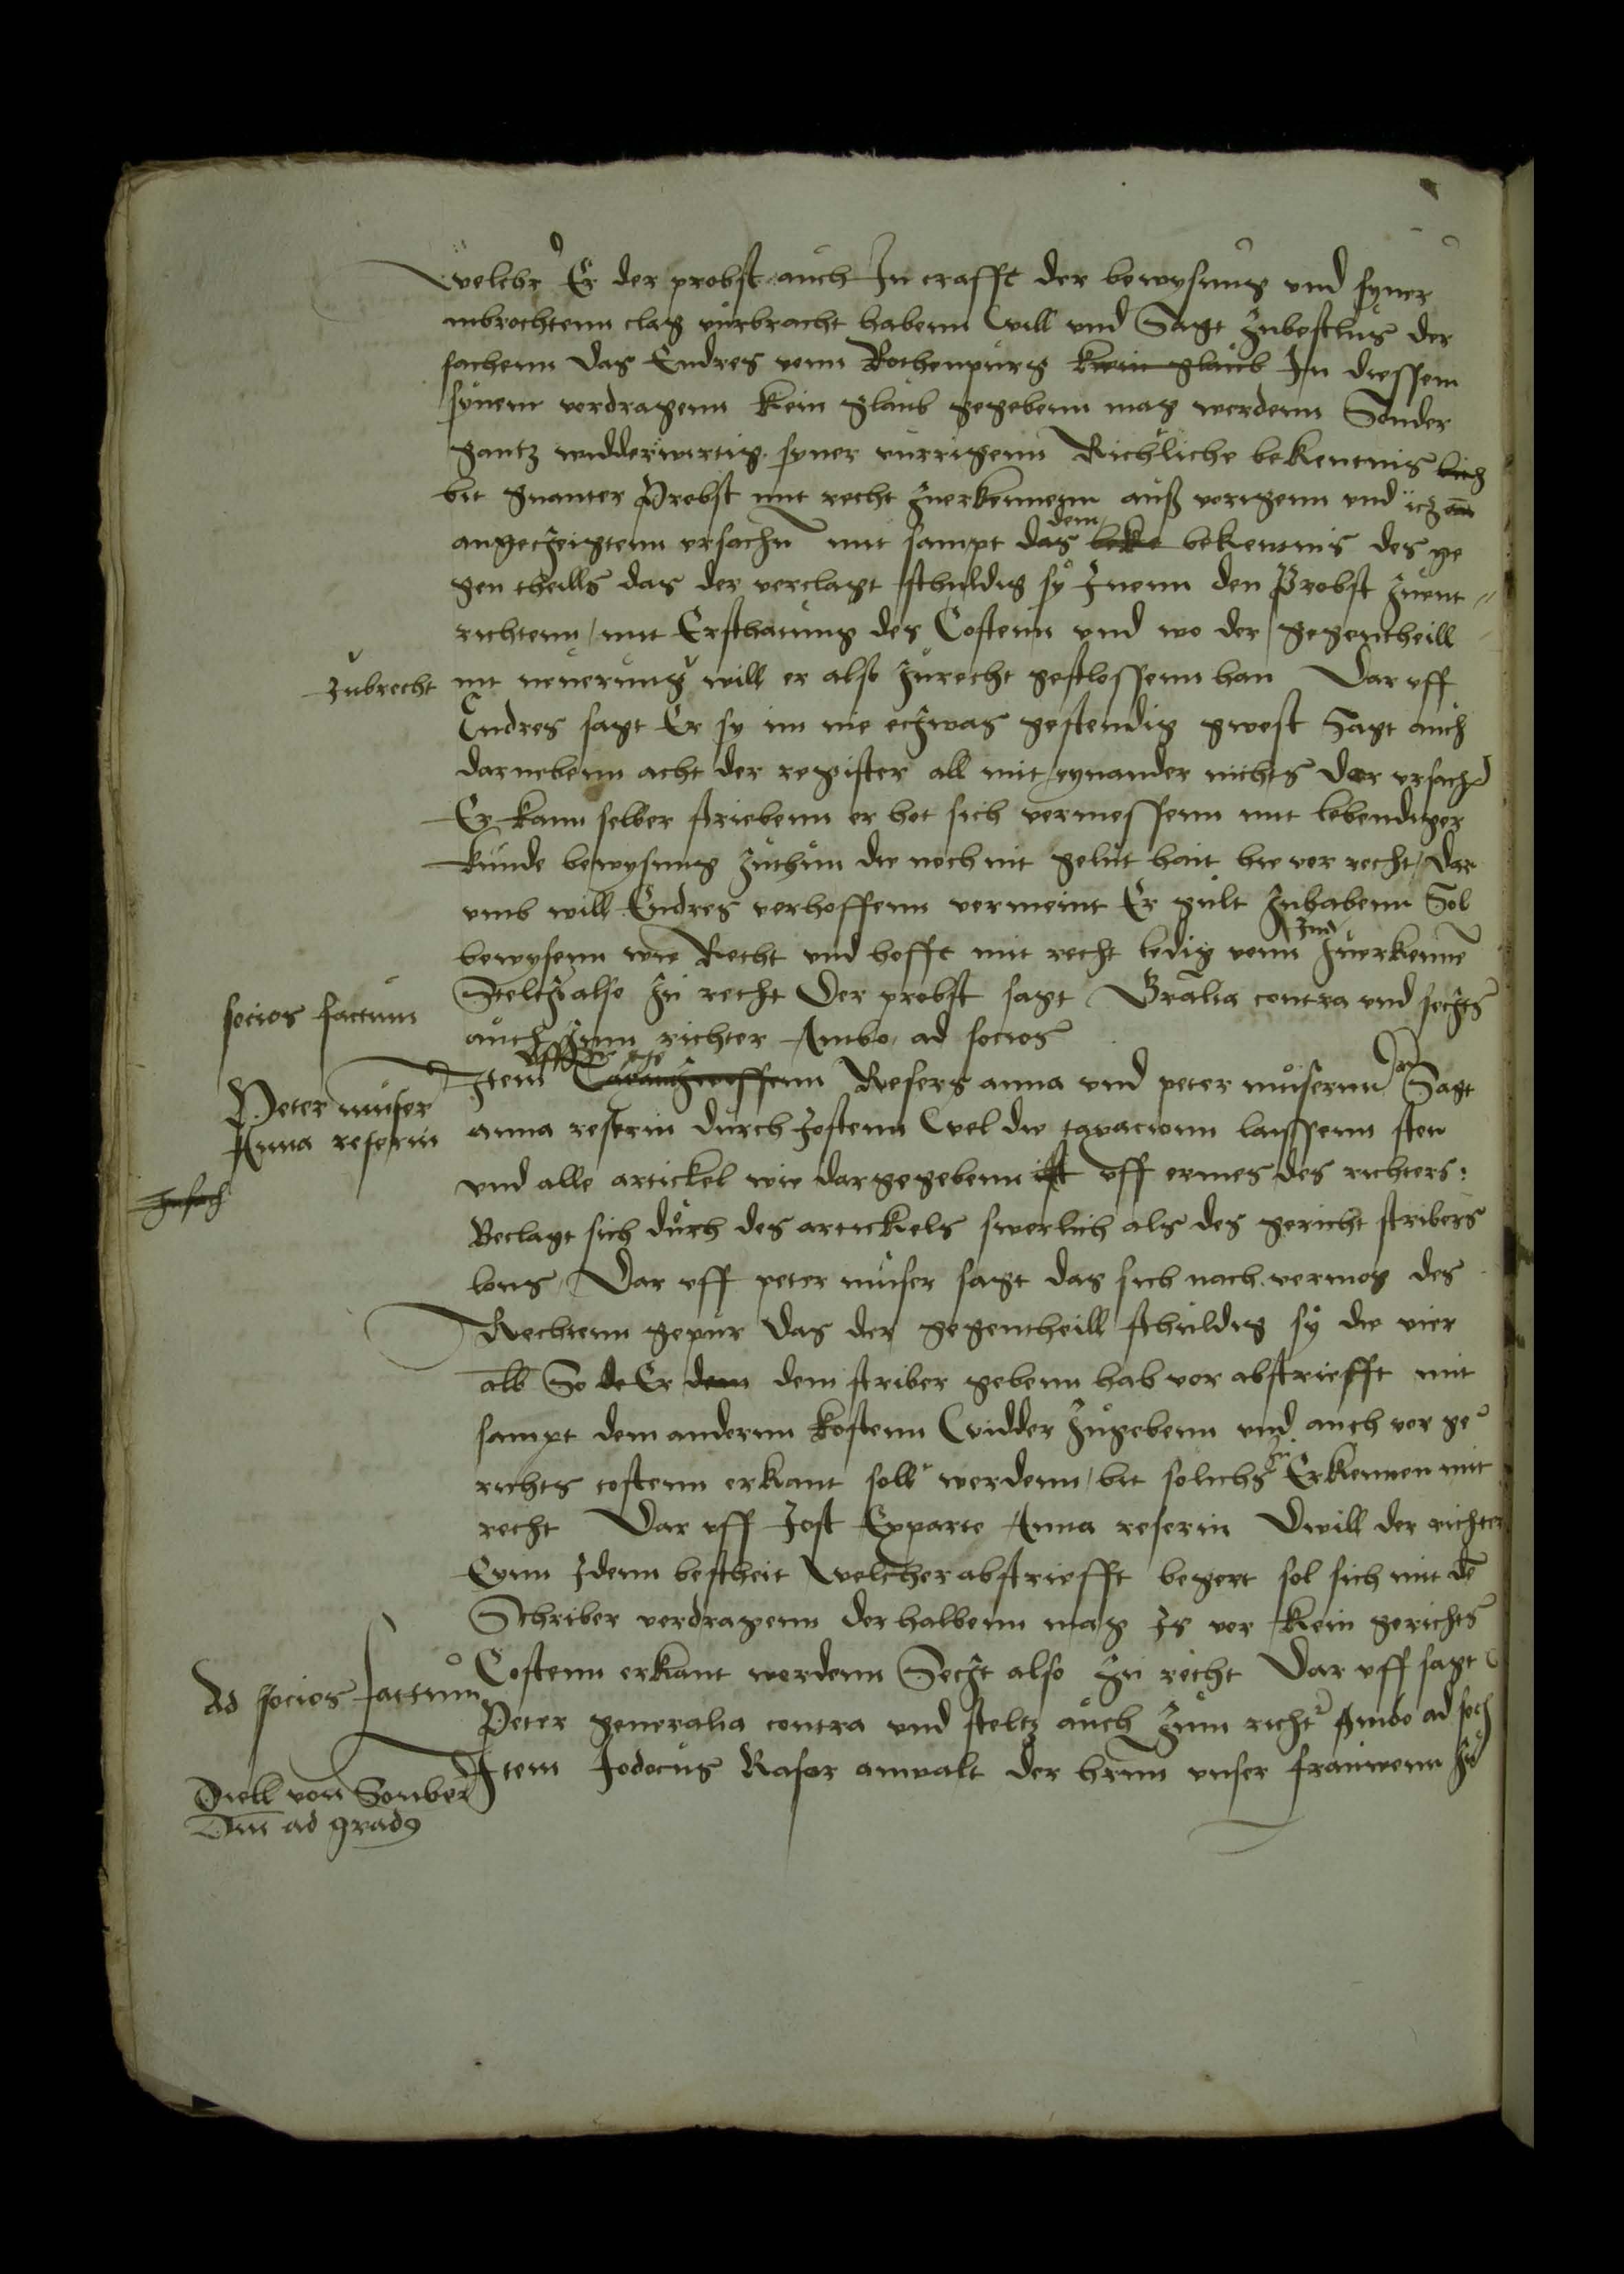 welchs Er der probst auch In crafft der bewysung vnd syner
inbrochtenn clag vurbracht habenn Will vnd Sagt zubestlus der
sachenn das Endres vonn Rothenpurg kein glaub In diessem
synem vordragenn kein glaub gegebenn mag werdenn Sonder
gantz widderwirtig syner vurrigenn Richliche bekentnis
bit gnanter Probst mit recht zuerkennenn auß vorigenn vnd icz an
angezeigtenn vrsachn mit sampt das dem beke bekentnis des ge
gen theills das der verclagt schuldig sy Inenn den Probst zuent
richtenn mit Ersthatung des Costenn vnd wo der gegentheill
nit neuerung will er also zurecht gestlossenn han Dar vff
zubrecht
Endres sagt Er sy im nie eczwas gestendig gwest Sagt auch
darnebenn acht der register all mit eynander nichts Der vrsach
Er kann selber striebenn er hot sich vermessenn mit lebendiger
kunde bewysung zuthun die noch nit gelut hait hie vor recht Dar
vmb will Endres verhoffenn vermeint Er gult zuhabenn Sol
bewysenn wie Recht vnd hofft mit recht ledig vonn Im zuerkenne
Steltz also zu recht Der probst sagt Gralia contra vnd seczts
auch zum richter Ambo ad socios
socios factum
Item vff die Resers anna vnd peter musernn Sagt
anna reserin durch Jostenn Wel die taxacionn laissenn sten
Peter muser
Anna reserin
vnd alle artickel wie dargegebenn ist vff ermes des richters:
Beclagt sich durh des artickels swerlich als des gericht stribers
lons Dar vff peter muser sagt das sich nach vermog des
Rechtenn gepur Das der gegentheill schuldig sy die vier
alb So de Er dem dem striber gebenn hab vor abstriefft mit
sampt dem andernn kostenn Widder zugebenn vnd auch vor ge
richts costenn erkant soll werdenn bit solichs zu Erkennen mit
recht Dar vff Jost Exparte Anna reserin Dwill der richter
Eynn Idenn bestheit Welcher abstriefft begert sol sich mit de
Schriber verdragenn derhalbenn mag Is vor kein gerichts
Costenn erkant werdenn Seczt also zu recht Dar vff sagt
Peter generalia contra vnd steltz auch zum richt Ambo ad soc
Ad socios factum
Item Jodocus Raser anwalt der hrnn vnser frauwenn zu
Diell von Sonber
Dni ad grad9